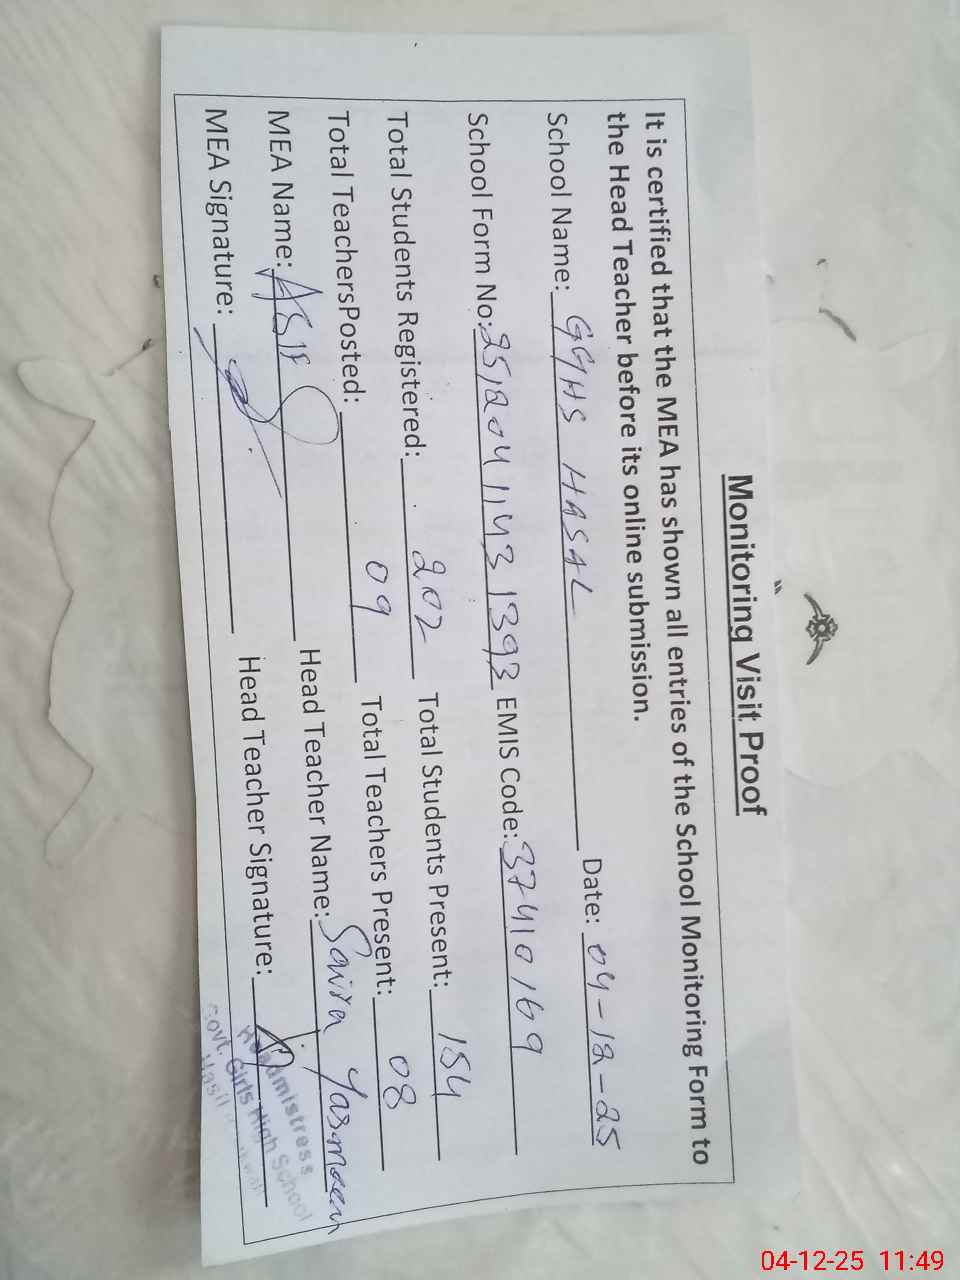 Monitoring Visit Proof
It is certified that the MEA has shown all entries of the School Monitoring Form to
the Head Teacher before its online submission.
School Name: GGHS HASAL Date: 04-12-25
School Form No: 251204 1143 1393 EMIS Code: 37410169
Total Students Registered: 202 Total Students Present: 154
Total TeachersPosted: 09 Total Teachers Present: 08
MEA Name: ASIF Head Teacher Name: Saira Yasmeen
MEA Signature: Head Teacher Signature:
Headmistress
Govt. Girls High School
04-12-25 11:49